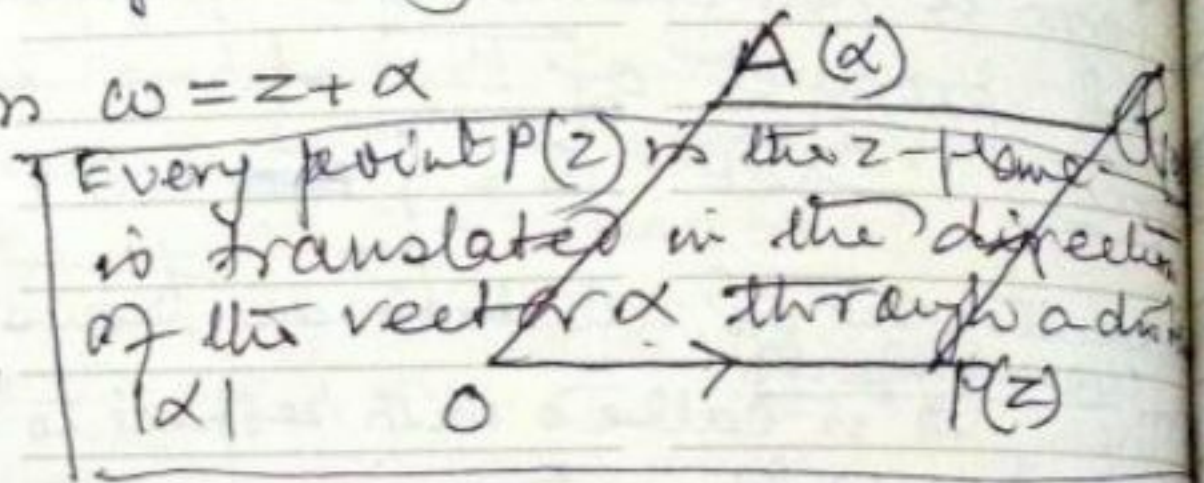 ω = z + α
A (α)
Every point P(z) in the z-plane
is translated in the direction
of the vector α through a
|α| O P(z)